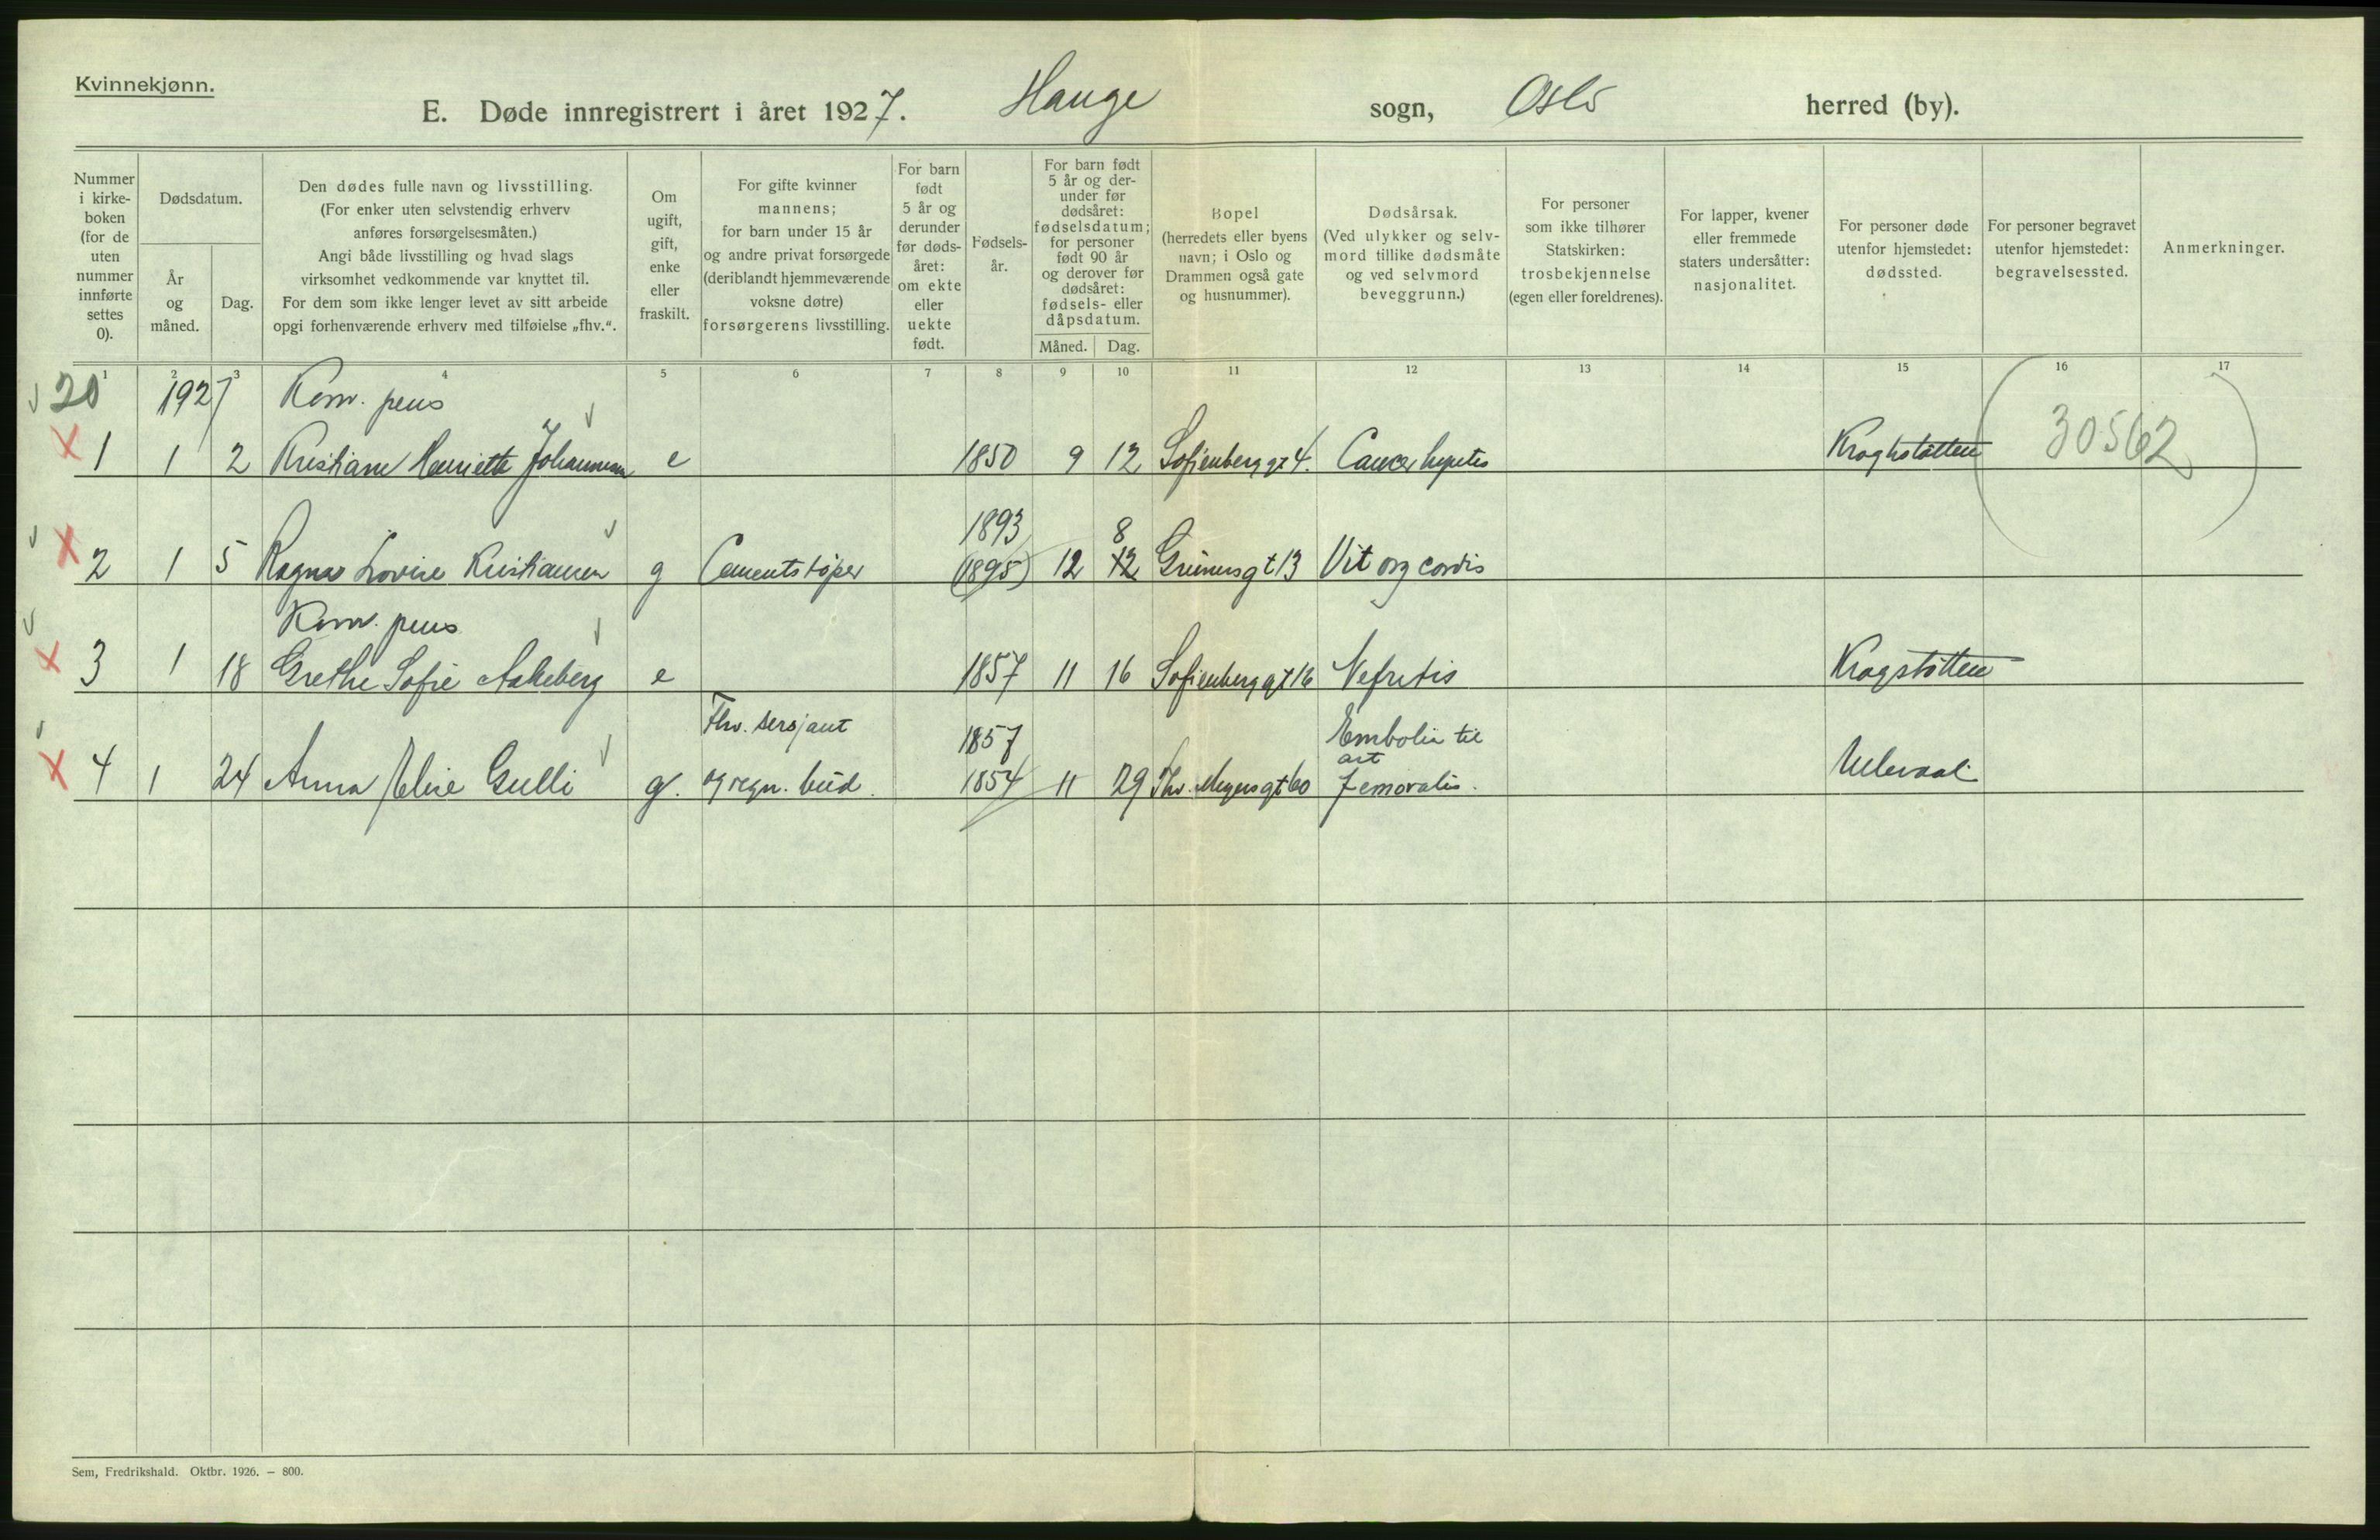 Kvinnekjønn.
E. Døde innregistrert i året 1927. Hauge sogn, Oslo herred (by).
Nummer
i kirke-
boken
(for de
uten
nummer
innførte
settes
0).
Dødsdatum.
År
og
måned.
Dag.
Den dødes fulle navn og livsstilling.
(For enker uten selvstendig erhverv
anføres forsørgelsesmåten.)
Angi både livsstilling og hvad slags
virksomhet vedkommende var knyttet til.
For dem som ikke lenger levet av sitt arbeide
opgi forhenværende erhverv med tilføielse „fhv.“.
Om
ugift,
gift,
enke
eller
fraskilt.
For gifte kvinner
mannens;
for barn under 15 år
og andre privat forsørgede
(deriblandt hjemmeværende
voksne døtre)
forsørgerens livsstilling.
For barn
født
5 år og
derunder
før døds-
året:
om ekte
eller
uekte
født.
Fødsels-
år.
For barn født
5 år og der-
under før
dødsåret:
fødselsdatum;
for personer
født 90 år
og derover før
dødsåret:
fødsels- eller
dåpsdatum.
Måned. Dag.
Bopel
(herredets eller byens
navn; i Oslo og
Drammen også gate
og husnummer).
Dødsårsak.
(Ved ulykker og selv-
mord tillike dødsmåte
og ved selvmord
beveggrunn.)
For personer
som ikke tilhører
Statskirken:
trosbekjennelse
(egen eller foreldrenes).
For lapper, kvener
eller fremmede
staters undersåtter:
nasjonalitet.
For personer døde
utenfor hjemstedet:
dødssted.
For personer begravet
utenfor hjemstedet:
begravelsessted.
Anmerkninger.
1 2 3 4 5 6 7 8 9 10 11 12 13 14 15 16 17
20 1927 Kom. pens
30562
1 1 2 Kristiane Henriette Johannesen e 1850 9 12 Sofienberg gt 4. Cancer hepatis Kroghstøtten
1893 8
2 1 5 Ragna Lovise Kristiansen g Cementstøper (1895) 12 12 Grünersgt 13 Vit org cordis
Kom. pens
3 1 18 Grethe Sofie Aakeberg e 1857 11 16 Sofienberg gt 16 Nefritis Krogstøtten
Fhv. sersjant 1857 Emboli til
art
4 1 24 Anna Elise Gulli g. og regn. bud. 1854 11 29 Thv. Meyersgt 60 femoralis. Ulleval
Sem, Fredrikshald. Oktbr. 1926. — 800.